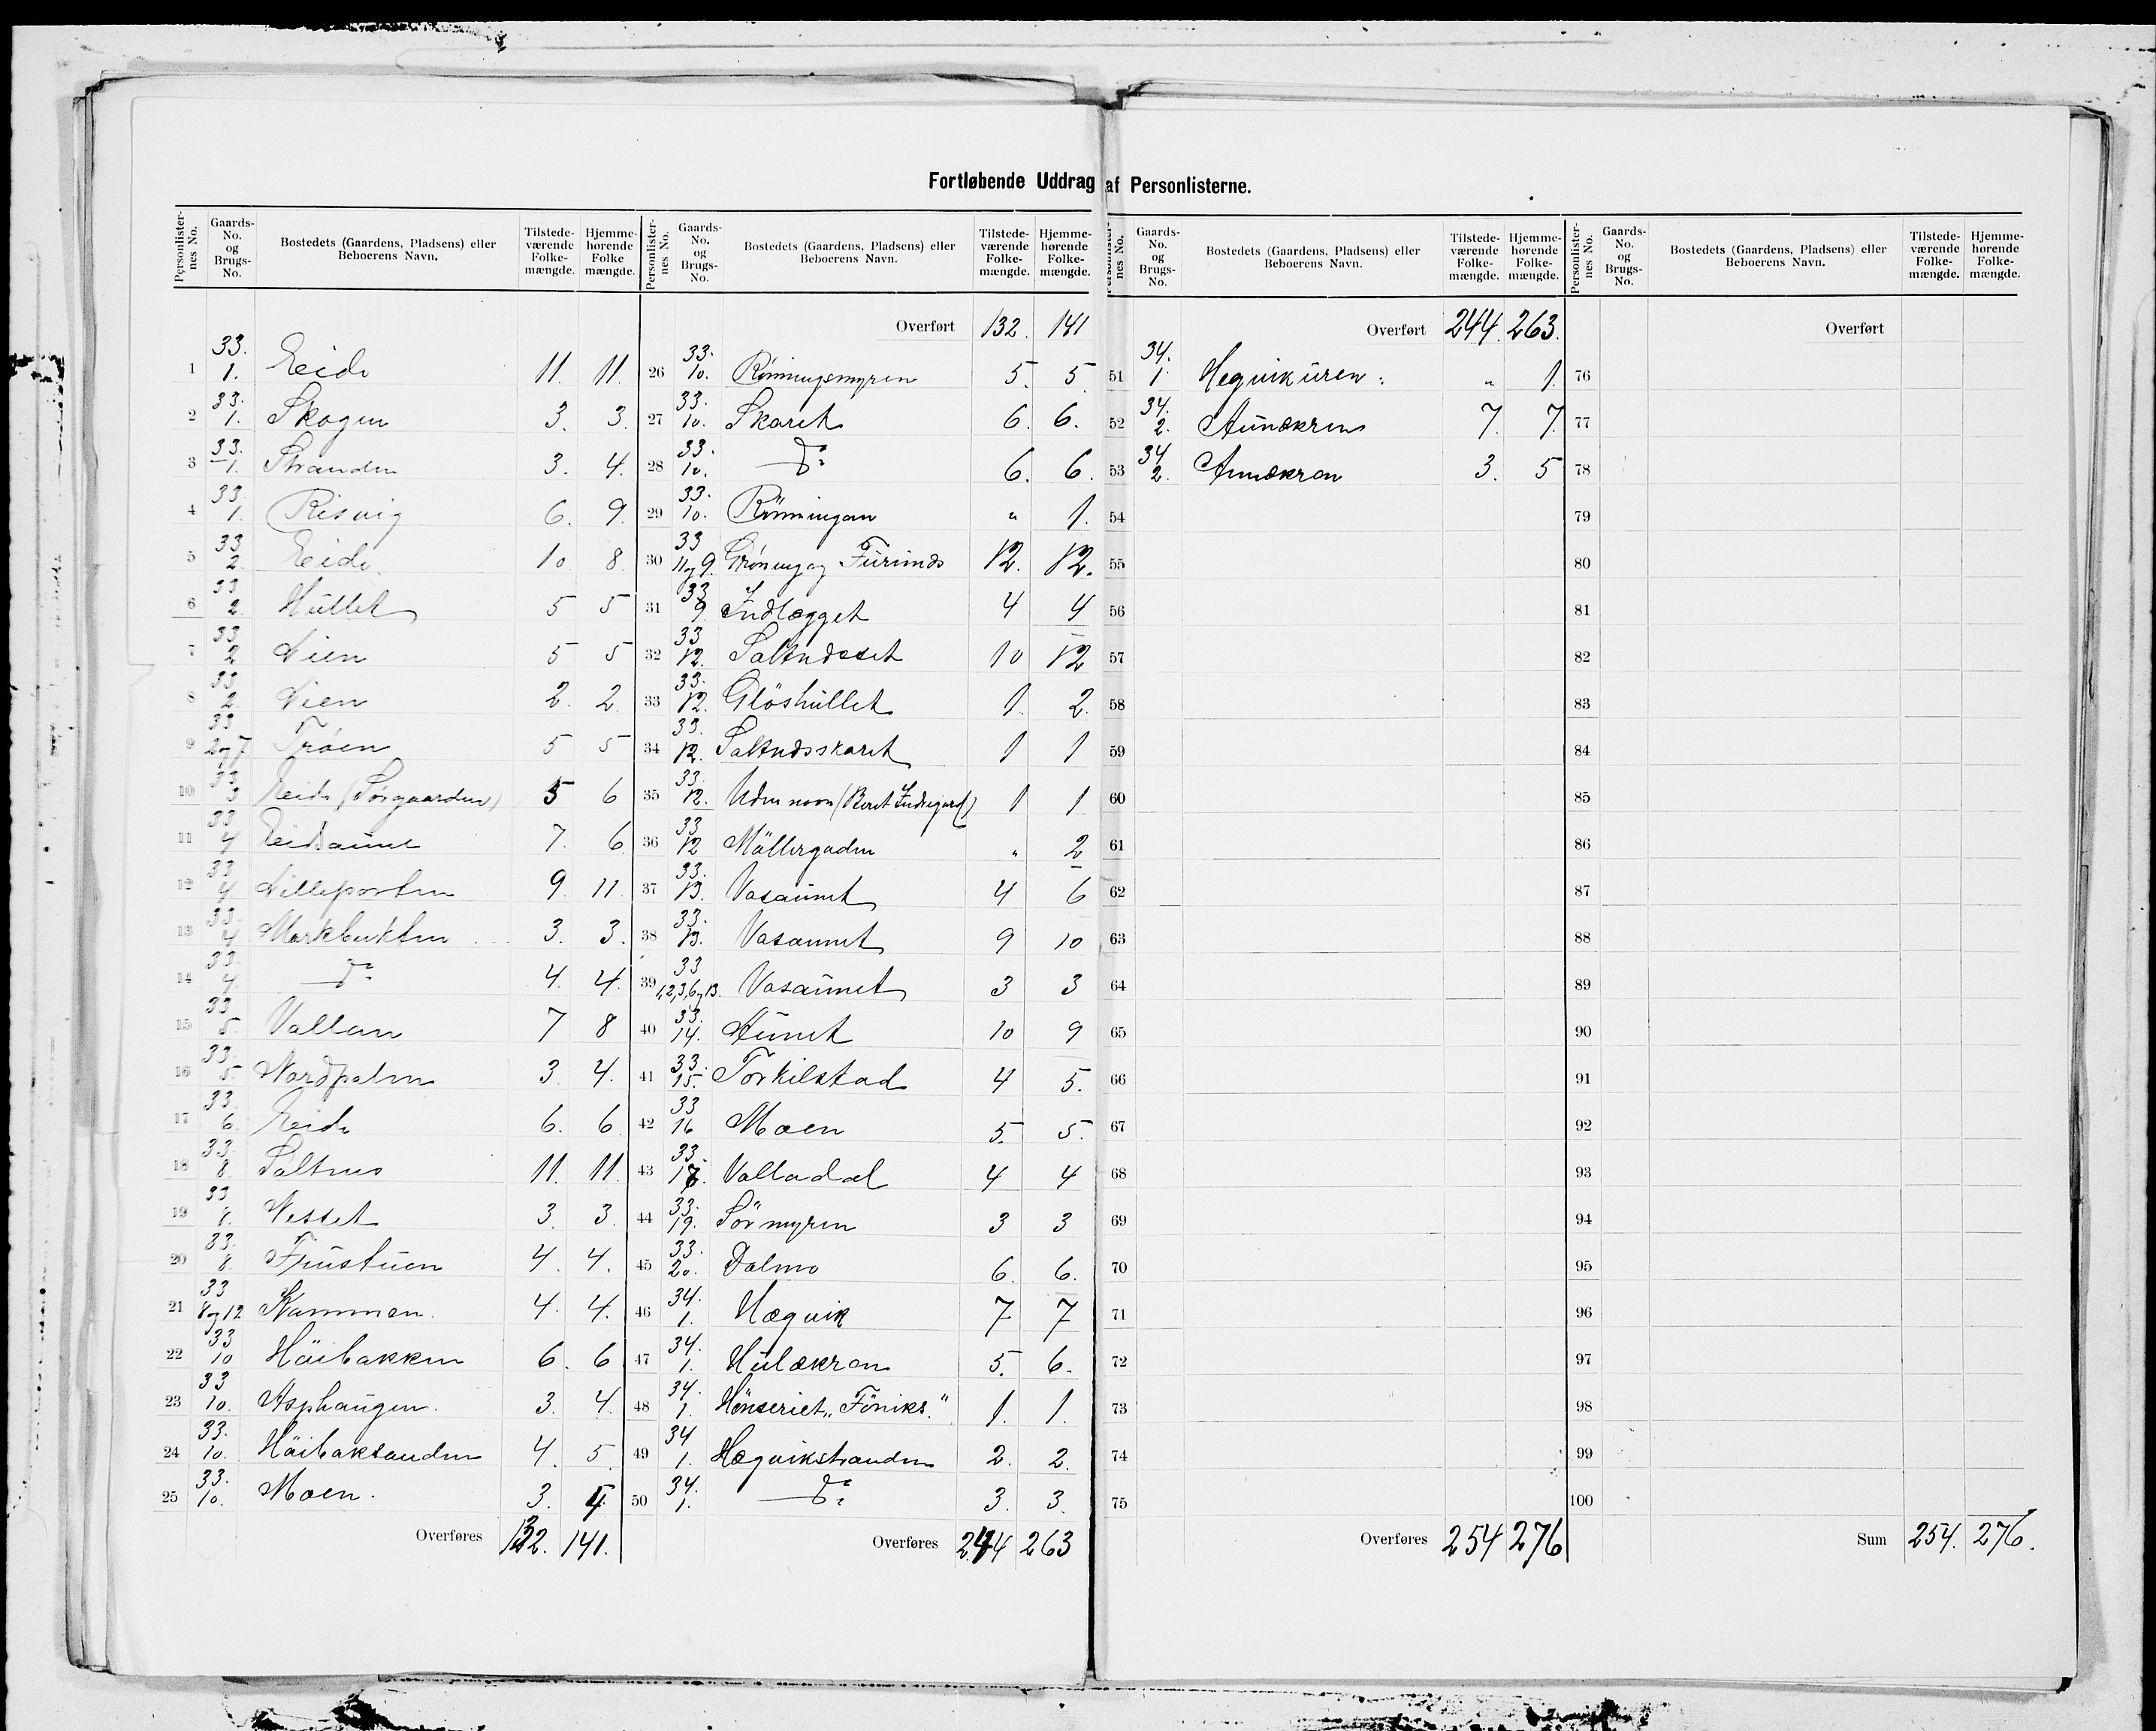 Fortløbende Uddrag af Personlisterne.
Personlisternes No. Gaards-No. og Brugs-No. Bostedets (Gaardens, Pladsens) eller Beboerens Navn. Tilstedeværende Folkemængde. Hjemmehørende Folkemængde.
1 33. 1. Eide 11. 11.
2 33. 1. Skogen 3. 3.
3 33. 1. Stranden 3. 4.
4 33. 1. Risvig 6. 9.
5 33 2. Eide 10 8.
6 33 2. Hullet 5 5
7 33 2 Lien 5 5
8 33 2. Lien 2. 2.
9 33 2og7 Trøen 5 5
10 33 3 Eide (Sørgaarden) 5 6
11 33 4 Eidsaune 7. 6
12 33 4 Lilleporten 9. 11.
13 33. 4 Markbukten 3. 3.
14 33. 4. do 4. 4.
15 33 5. Vallan 7 8
16 33. 5. Nordpalen 3. 4.
17 33. 6. Eide 6. 6
18 33. 8. Saltnes 11. 11.
19 33 8. Nesset 3. 3.
20 33. 8. Fjustuen 4. 4.
21 33 8og12. Kammen. 4. 4.
22 33 10 Höibakken 6. 6
23 33 10. Asphaugen. 3. 4.
24 33. 10. Höibaksanden 4. 5.
25 33. 10. Moen. 3. 4.
Overføres 132. 141.
Personlisternes No. Gaards-No. og Brugs-No. Bostedets (Gaardens, Pladsens) eller Beboerens Navn. Tilstedeværende Folkemængde. Hjemmehørende Folkemængde.
Overført 132. 141
26 33. 10. Rönningsmyren 5. 5.
27 33. 10. Skaret 6. 6.
28 33. 10. do 6. 6.
29 33. 10. Rönningan " 1.
30 33 11og9. Grøning og 12. 12.
31 33 9. Indlægget 4 4
32 33 12. 10 12
33 33. 12. Glöshullet 1. 2.
34 33. 12. 1 1
35 33. 12. Uden navn (Beret 1 1
36 33 12 Möllergaden " 2
37 33. 13. Vasaunet 4 6
38 33. 13. Vasaunet 9 10
39 33 1,2,3,6og13. Vasaunet 3 3
40 33. 14. Aunet 10 9
41 33. 15. Torkilstad 4 5.
42 33 16 Moen 5. 5.
43 33. 17. Valladal 4 4
44 33. 19. Sörmyren 3 3
45 33. 20. Dalmo 6. 6.
46 34. 1. Hægvik 7 7
47 34. 1. Hulækran 5. 6.
48 34. 1. Hönseriet „Föniks." 1. 1.
49 34 1. Hægvikstranden 2. 2.
50 34. 1. do 3. 3.
Overføres 244 263
Personlisternes No. Gaards-No. og Brugs-No. Bostedets (Gaardens, Pladsens) eller Beboerens Navn. Tilstedeværende Folkemængde. Hjemmehørende Folkemængde.
Overført 244. 263.
51 34. 1. Hegvikuren " 1.
52 34. 2. Aunækren 7. 7.
53 34 2. Aunækran 3. 5
54
55
56
57
58
59
60
61
62
63
64
65
66
67
68
69
70
71
72
73
74
75
Overføres 254 276
Personlisternes No. Gaards-No. og Brugs-No. Bostedets (Gaardens, Pladsens) eller Beboerens Navn. Tilstedeværende Folkemængde. Hjemmehørende Folkemængde.
Overført
76
77
78
79
80
81
82
83
84
85
86
87
88
89
90
91
92
93
94
95
96
97
98
99
100
Sum 254. 276.